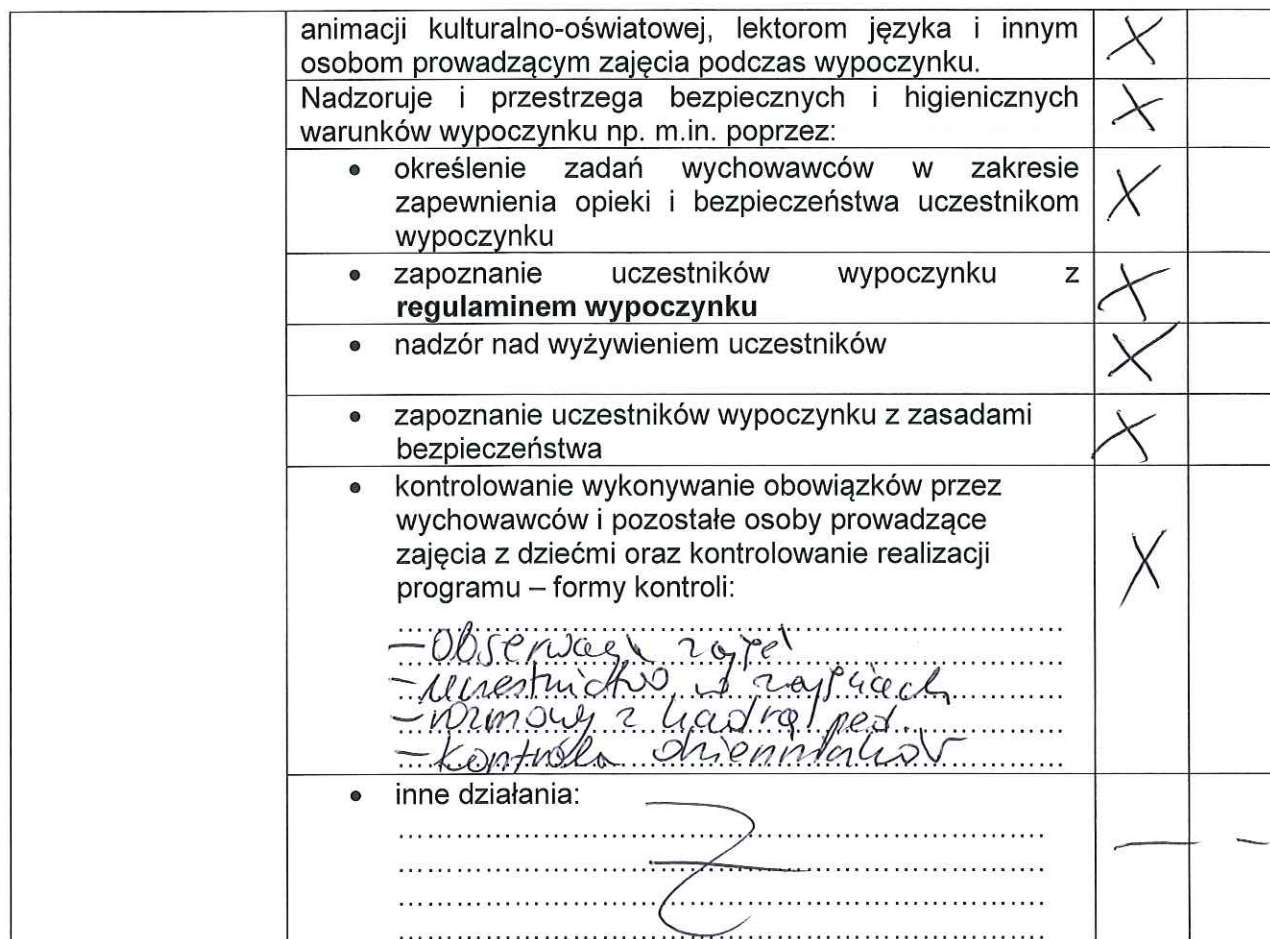 animacji kulturalno-oświatowej, lektorom języka i innym
osobom prowadzącym zajęcia podczas wypoczynku.
X
Nadzoruje i przestrzega bezpiecznych i higienicznych
warunków wypoczynku np. m.in. poprzez:
X
• określenie zadań wychowawców w zakresie
zapewnienia opieki i bezpieczeństwa uczestnikom
wypoczynku
X
• zapoznanie uczestników wypoczynku z
regulaminem wypoczynku
X
• nadzór nad wyżywieniem uczestników
X
• zapoznanie uczestników wypoczynku z zasadami
bezpieczeństwa
X
• kontrolowanie wykonywanie obowiązków przez
wychowawców i pozostałe osoby prowadzące
zajęcia z dziećmi oraz kontrolowanie realizacji
programu – formy kontroli:
X
- Obserwacja zajęć
- uczestnictwo w zajęciach
- rozmowy z kadrą ped.
- kontrola dzienników
• inne działania:
— -